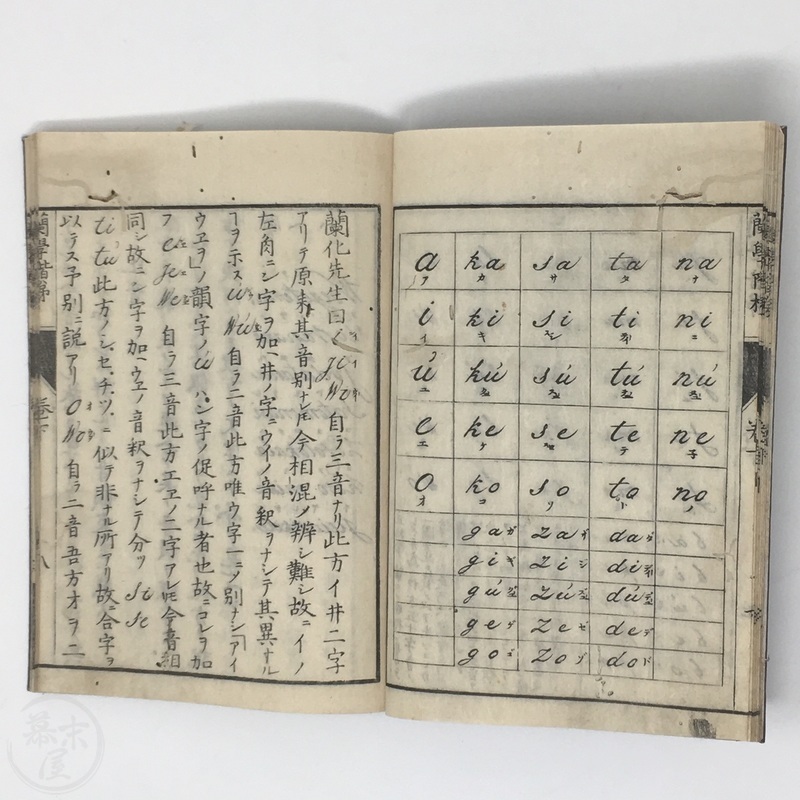 蘭學階梯
a ka sa ta na
ア カ サ タ ナ
i ki si ti ni
イ キ ニ
ú kú sú tú nú
e ke se te ne
エ ケ テ 子
o ko so to no
オ コ ソ ノ
ga za da
gi zi di
gú zú dú
ge ze de
go zo do
蘭化先生曰 i ji wi 自ラ三音ナリ此方イ井二字
アリテ原来其音別ナレ𪜈今相混メ辨シ難シ故ニイノ
左角ニシ字ヲ加ヘ井ノ字ニウイノ音釈ヲナシテ其異ナル
ヿヲ示ス ú wú 自ラ二音此方唯ウ字一ニメ別ナシ「アイ
ウヱヲ」ノ韻字ノ ú ハン字ノ促呼ナル者也故ニコレヲ加
フ e je we 自ラ三音此方エヱノ二字アレ𪜈今音相
同シ故ニシ字ヲ加ヘウエノ音釈ヲナシテ分ツ si se
ti tú 此方ノシ、セ、チ、ツ、ニ似テ非ナル所アリ故ニ合字ヲ
以テス予別ニ説アリ o wo 自ラ二音吾方オヲ二
蘭學階梯
巻下
八
幕末屋